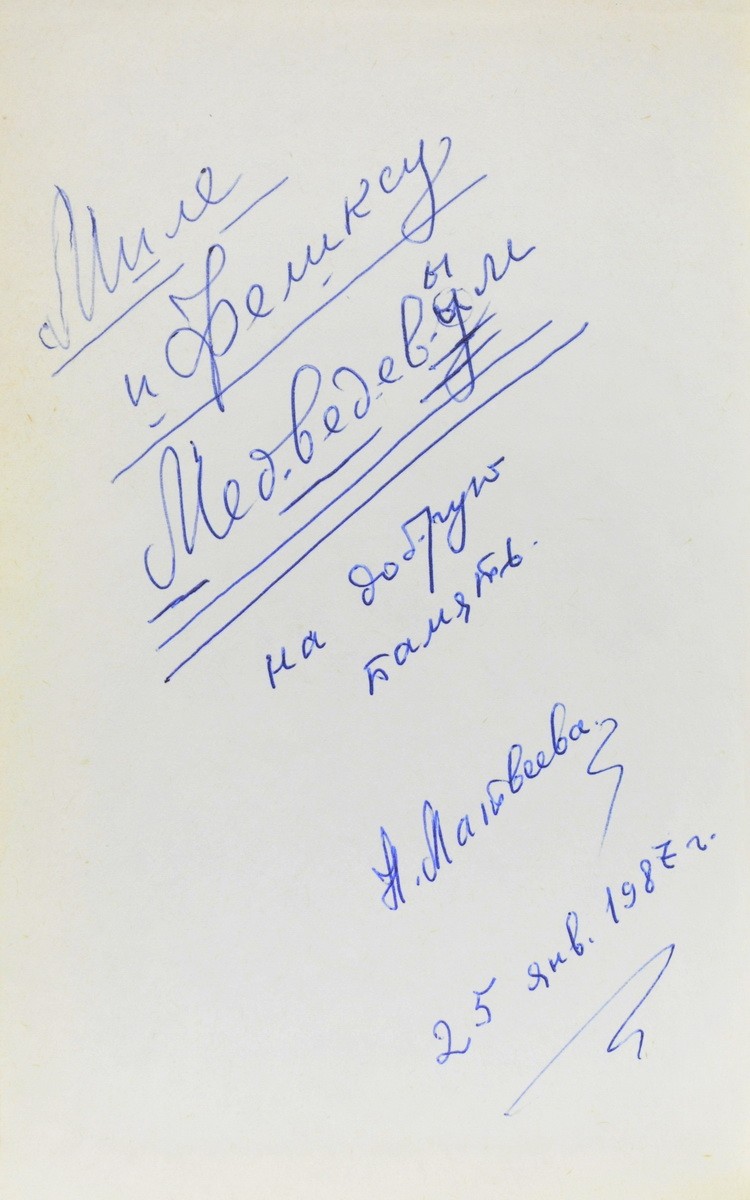 Миле
и Феликсу
Медведевым
на добрую
память.
Н. Матвеева.
25 янв. 1987 г.